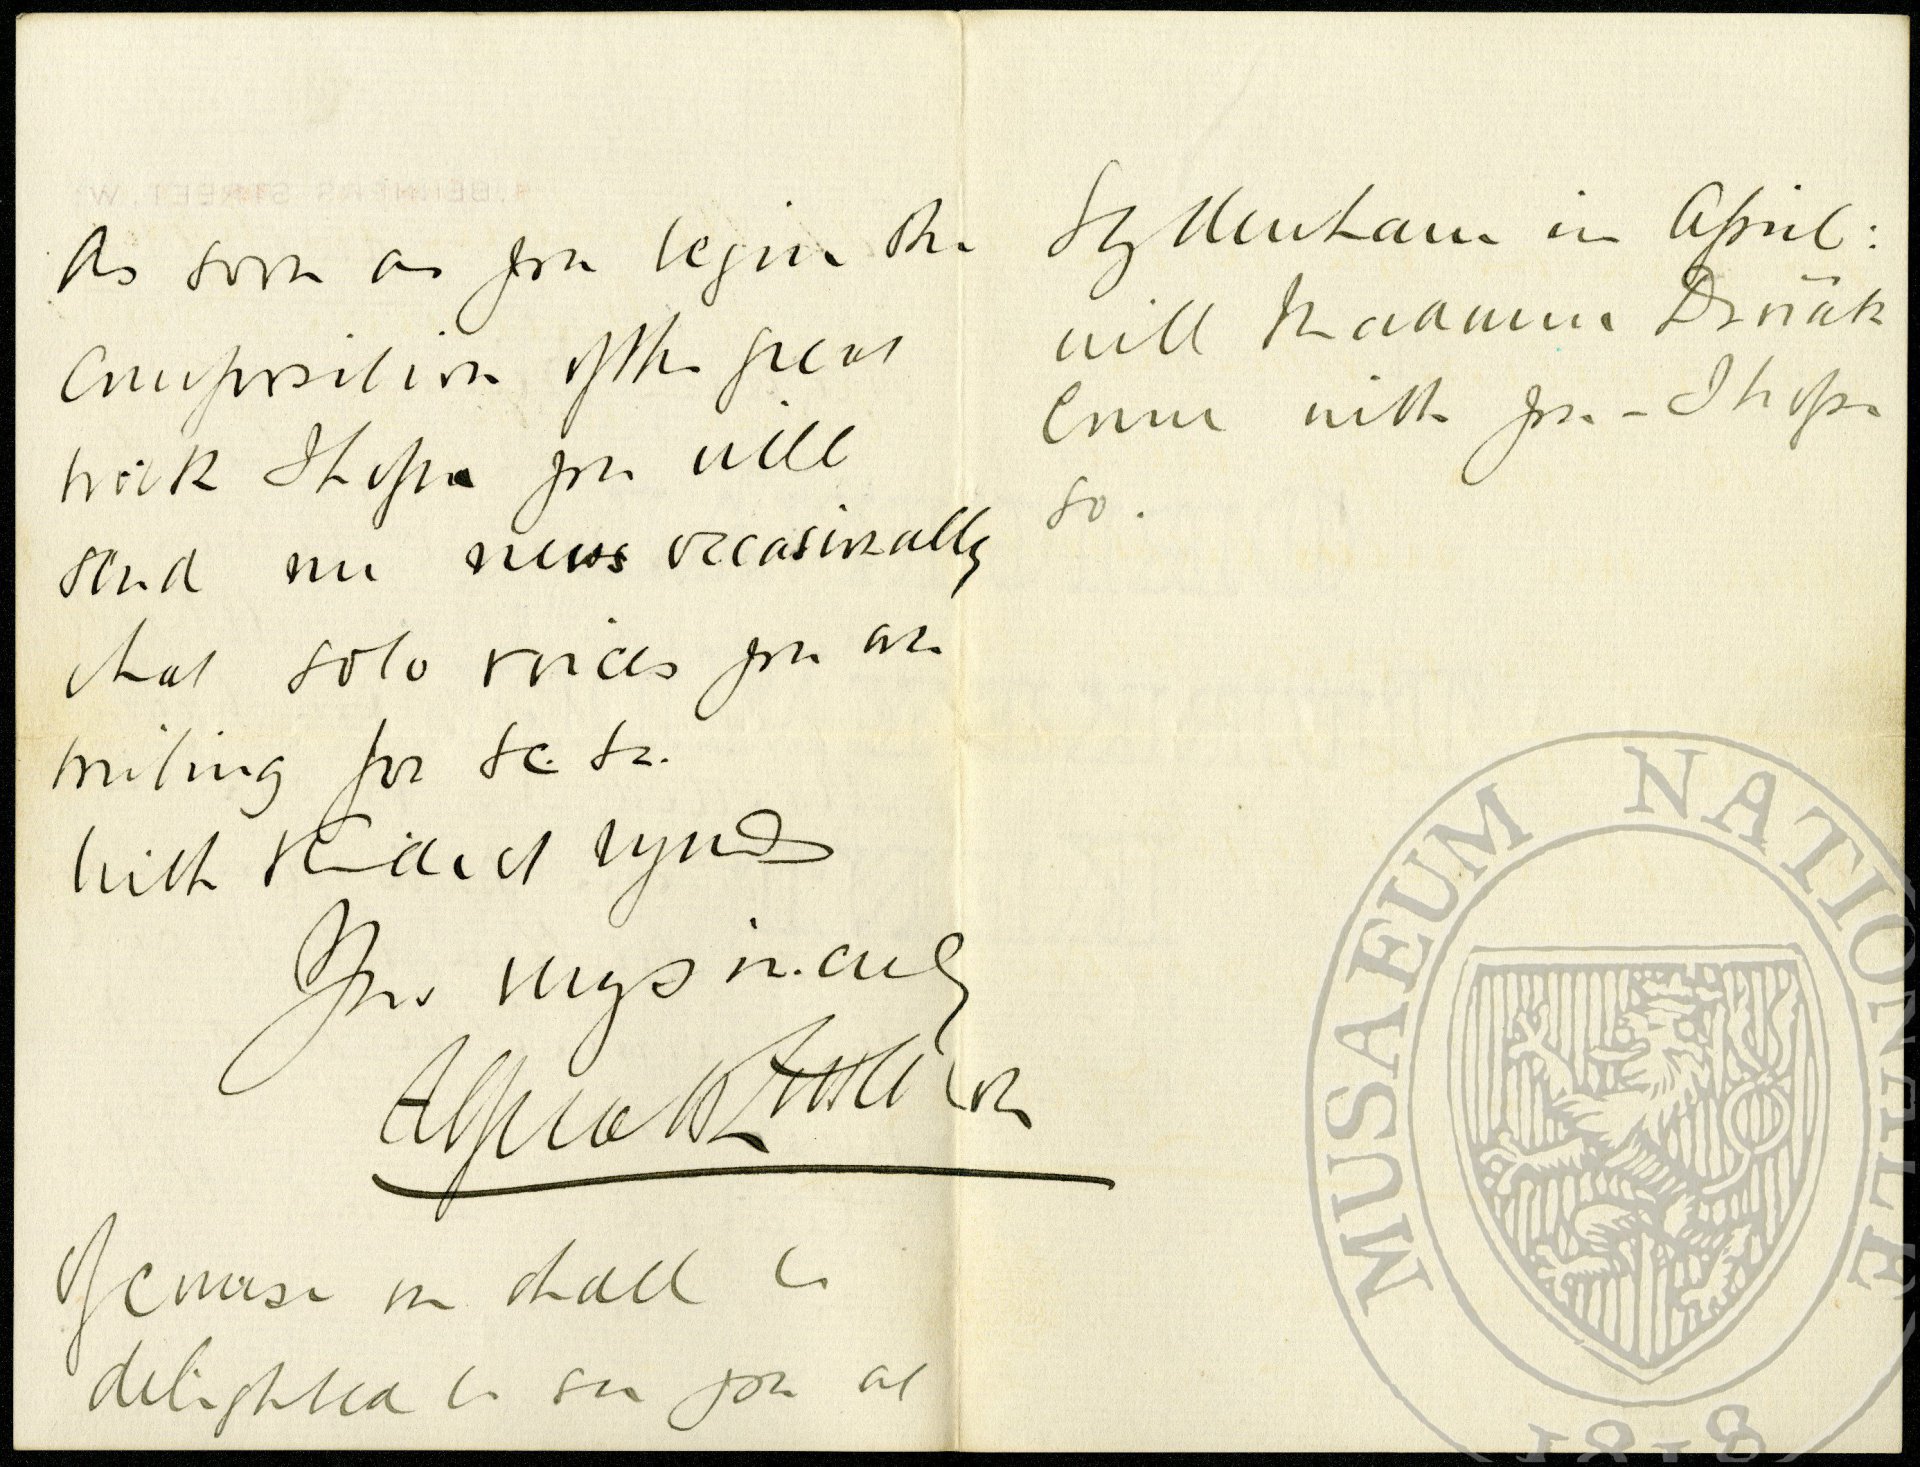 As soon as you begin the
Composition of the great
work I hope you will
send me news occasionally
what solo voices you are
writing for &c. &c.
With kindest regards
Yours very sincerely
Alfred H Littleton
Of course we shall be
delighted to see you at
Sydenham in April:
will Madame Dvořák
come with you – I hope
so.
1. BERNERS STREET, W.
MUSAEUM NATIONALE
1818